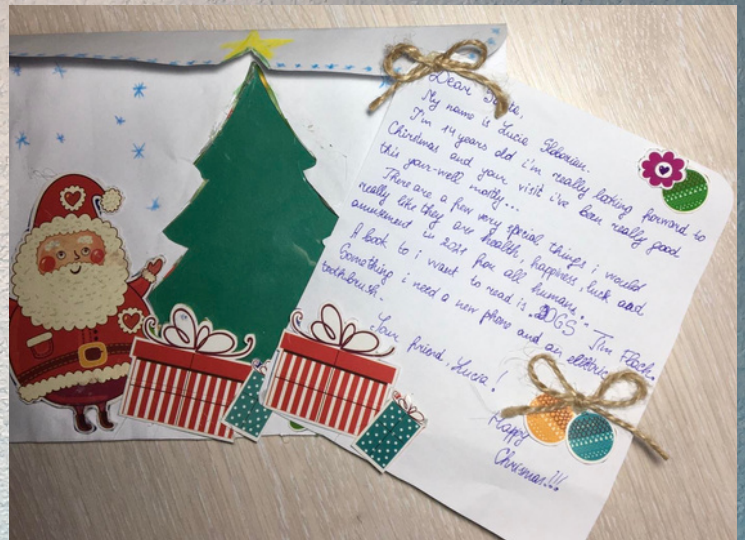 Dear Santa,
My name is Lucia
I'm 14 years old i'm really looking forward to
Christmas and your visit i've been really good
this year-well mostly...
There are a few very special things i would
really like they are health, happiness, luck and
amusement in 2021 for all humans...
A book to i want to read is DOGS Tim Flach.
Something i need a new phone and an electric
toothbrush.
Your friend, Lucia!
Happy
Chrismas!!!